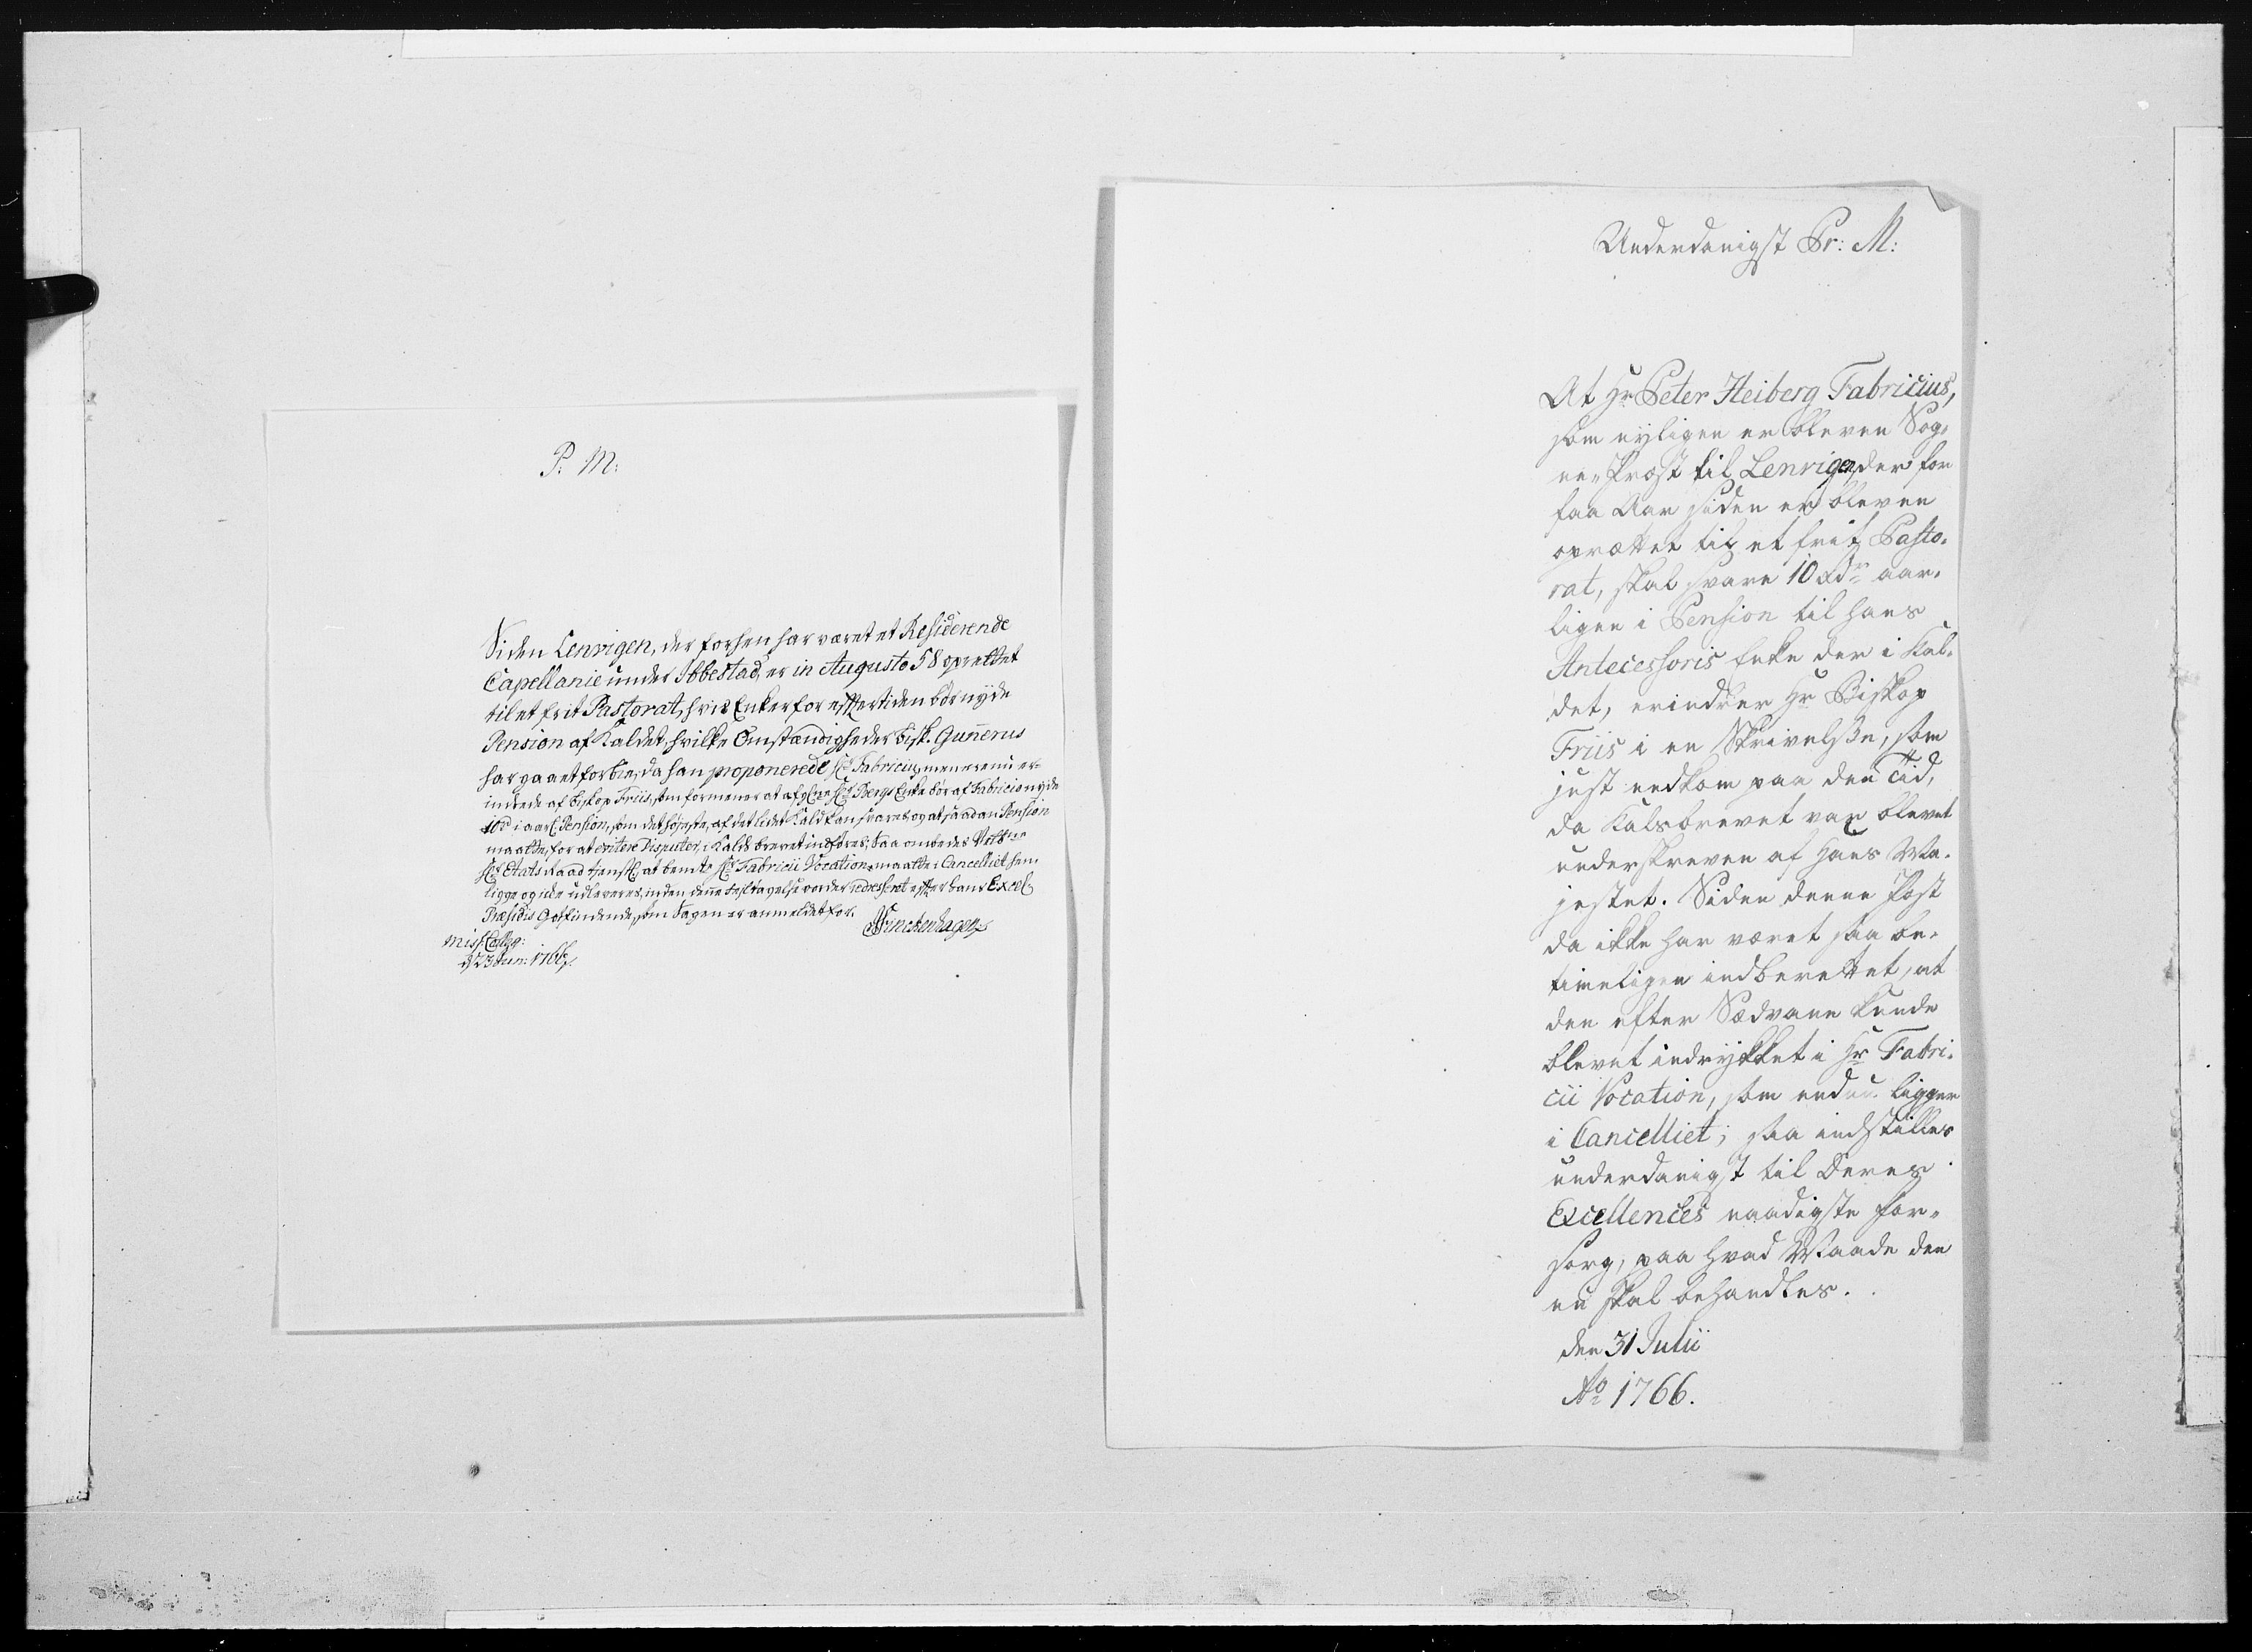 P: M:
Siden Lenvigen, der forhen har været et Residerende
Capellanie under Ibbestad, er in Augusto 58 oprettet
til et frit Pastorat, hvis Enker for eftertiden bør nyde
Pension af Kaldet, hvilke Omstændigheder Bisk. Gunnerus
har gaaet forbie, da han proponerede Hr Fabricius, men er nu er-
indrede af Biskop Friis, som formener at afgne Hr Bergs Enke bør af Fabricio nyde
10rd i aarl. Pension, som det højeste, af det lidet Kald kan svares, og at saadan Pension
maatte, for at evitere Disputer, i Kalds brevet indføres; Saa ombedes
Hr Etats Raad tjenstl: at bemte Hr Fabricii Vocation maatte i Cancelliet hen-
ligge og ikke udleveres, inden denne bliver redresseret efter hans Excel
Præsidis Gotfindende, som Sagen er anmeldet for.
Finckenhagen
Miss: Colleg:
d 23 Jun: 1766.
Underdanigst Pr: M:
At Hr Peter Heiberg Fabricius,
som nyligen er bleven Sog-
ne-Præst til Lenvigen, der for
faa Aar siden er bleven
oprættet til et frit Pasto-
rat, skal svare 10 rdr aar-
ligen i Pension til hans
Antecessoris Enke der i Kal-
det, erindrer Hr Biskop
Friis i en Skrivelse, som
just indkom paa den Tid,
da Kalsbrevet var blevet
underskreven af Hans Ma-
jestet. Siden denne Post
da ikke har været saa be-
timeligen indberettet, at
den efter Sædvane kunde
blevet indrykket i Hr Fabri-
cii Vocation, som endnu ligger
i Cancelliet; saa indstilles
underdanigst til Deres
Excellences naadigste For-
sorg, paa hvad Maade den
nu skal behandles.
den 31 Julii
Ao 1766.